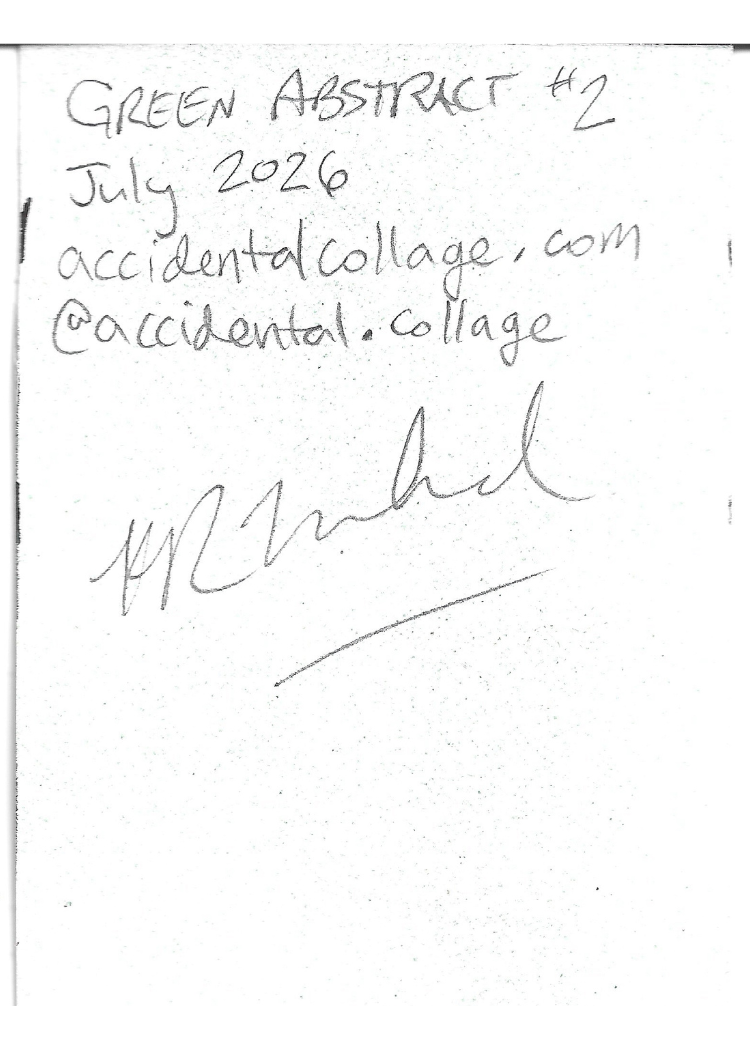 GREEN ABSTRACT #2
July 2026
accidentalcollage.com
@accidental.collage